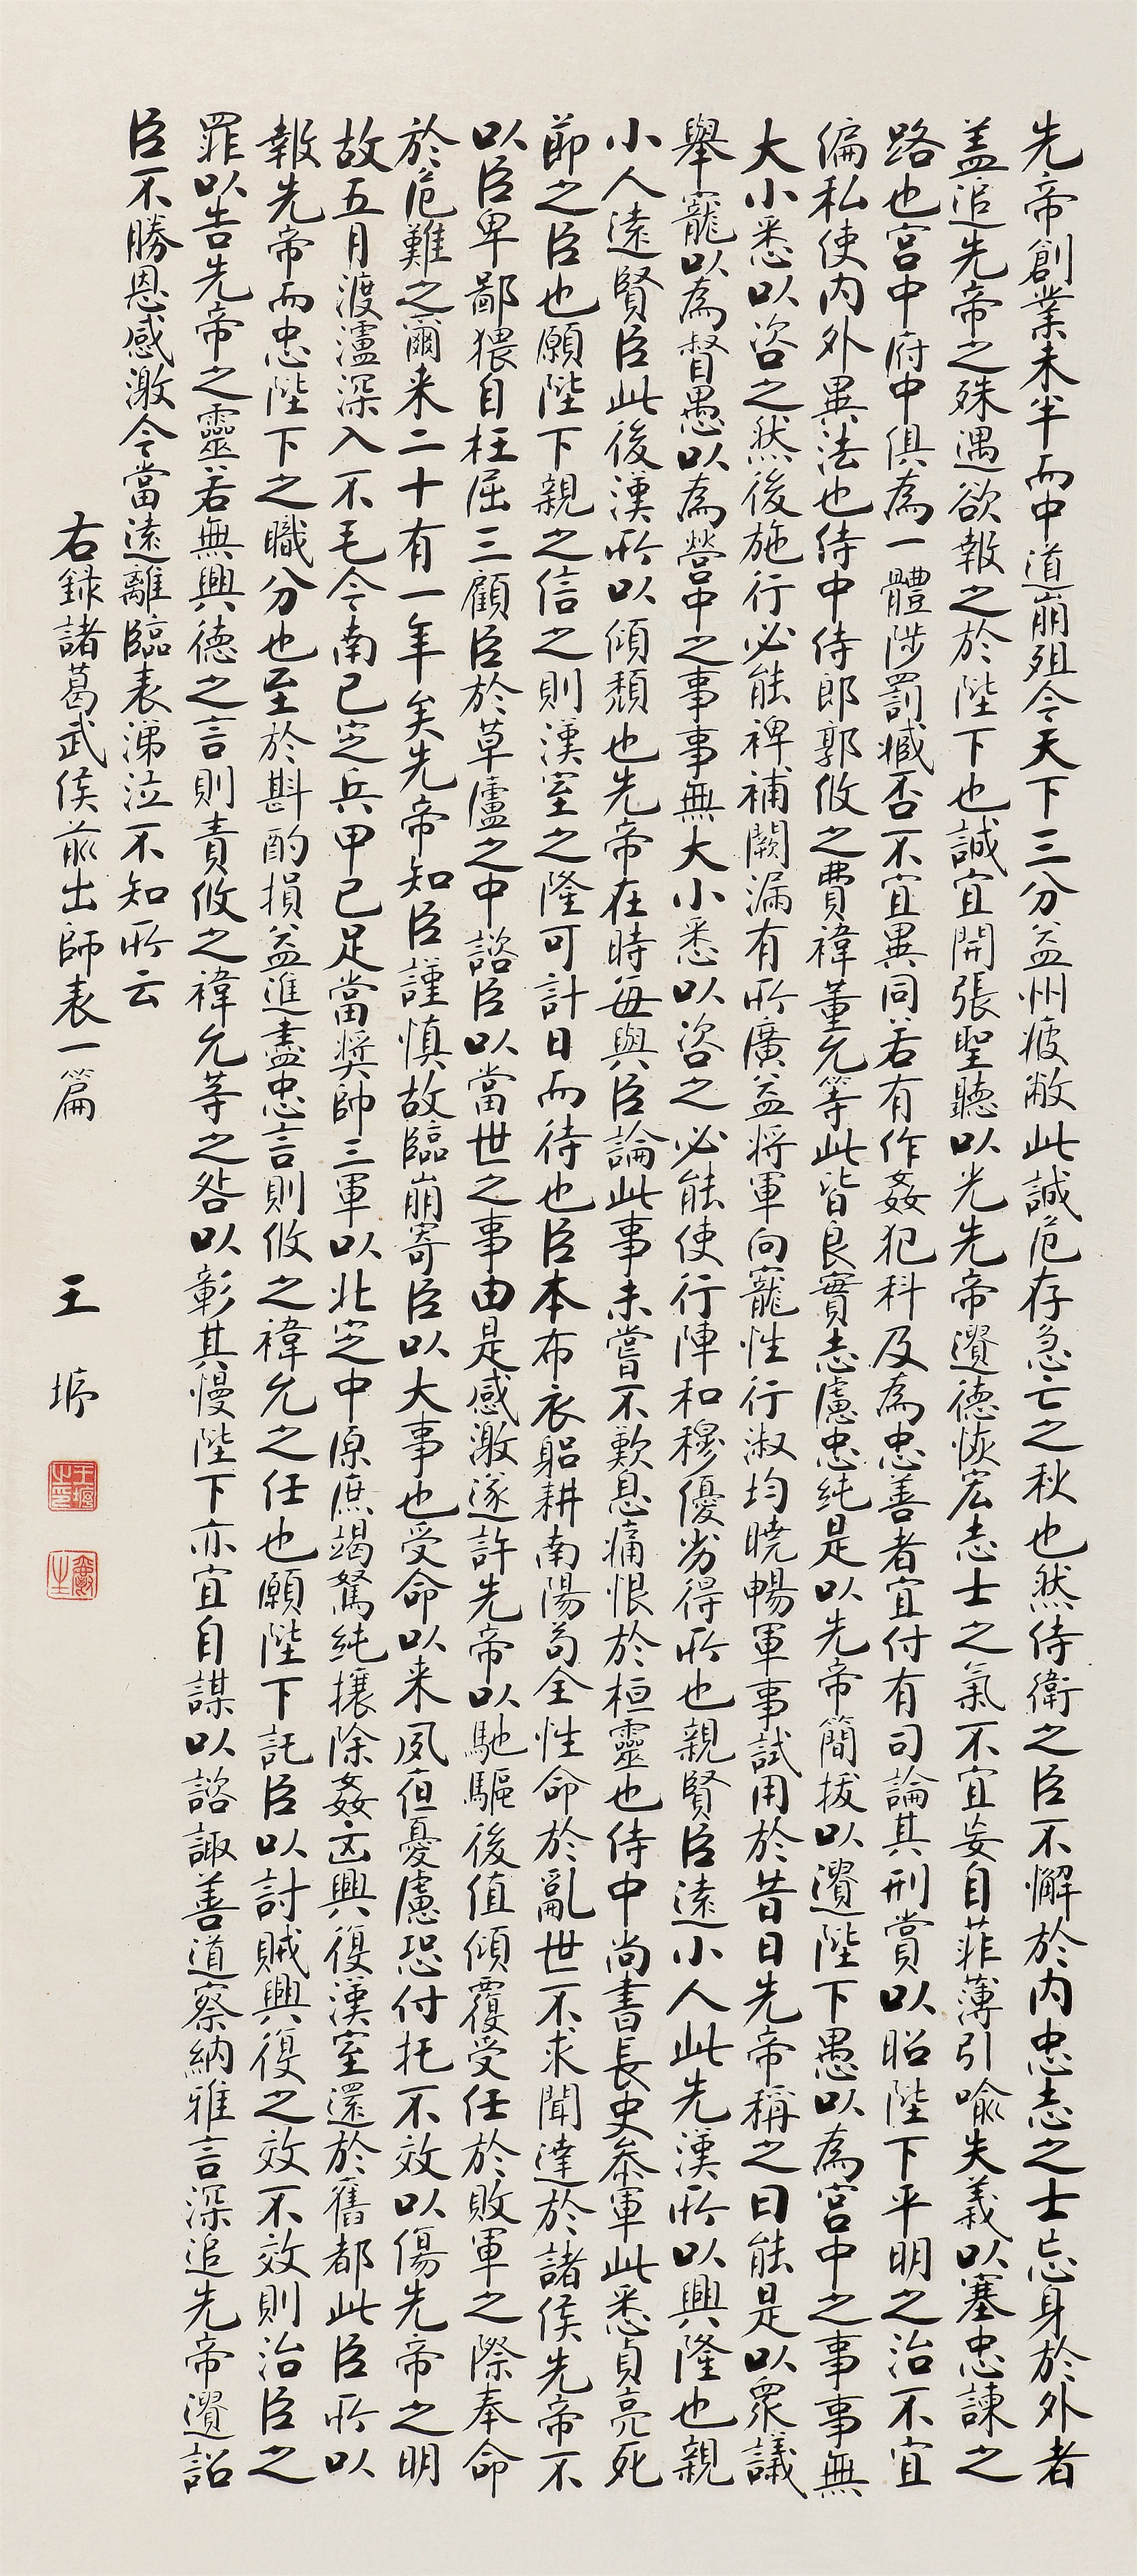 先帝創業未半而中道崩殂今天下三分益州疲敝此誠危存急亡之秋也然侍衛之臣不懈於内忠志之士忘身於外者
盖追先帝之殊遇欲報之於陛下也誠宜開張聖聽以光先帝遺德恢宏志士之氣不宜妄自菲薄引喻失義以塞忠諫之
路也宮中府中俱為一體陟罰臧否不宜異同若有作姦犯科及為忠善者宜付有司論其刑賞以昭陛下平明之治不宜
偏私使内外異法也侍中侍郎郭攸之費禕董允等此皆良實志慮忠純是以先帝簡拔以遺陛下愚以為宮中之事事無
大小悉以咨之然後施行必能裨補闕漏有所廣益將軍向寵性行淑均曉暢軍事試用於昔日先帝稱之曰能是以眾議
舉寵以為督愚以為營中之事事無大小悉以咨之必能使行陣和穆優劣得所也親賢臣遠小人此先漢所以興隆也親
小人遠賢臣此後漢所以傾頹也先帝在時每與臣論此事未嘗不歎息痛恨於桓靈也侍中尚書長史參軍此悉貞亮死
節之臣也願陛下親之信之則漢室之隆可計日而待也臣本布衣躬耕南陽苟全性命於亂世不求聞達於諸侯先帝不
以臣卑鄙猥自枉屈三顧臣於草廬之中諮臣以當世之事由是感激遂許先帝以馳驅後值傾覆受任於敗軍之際奉命
於危難之爾来二十有一年矣先帝知臣謹慎故臨崩寄臣以大事也受命以来夙夜憂慮恐付托不效以傷先帝之明
故五月渡瀘深入不毛今南已定兵甲已足當獎帥三軍以北定中原庶竭駑純攘除姦凶興復漢室還於舊都此臣所以
報先帝而忠陛下之職分也至於斟酌損益進盡忠言則攸之禕允之任也願陛下託臣以討賊興復之效不效則治臣之
罪以告先帝之靈若無興德之言則責攸之禕允等之咎以彰其慢陛下亦宜自謀以諮諏善道察納雅言深追先帝遺詔
臣不勝恩感激今當遠離臨表涕泣不知所云
右録諸葛武侯前出師表一篇
王㙷